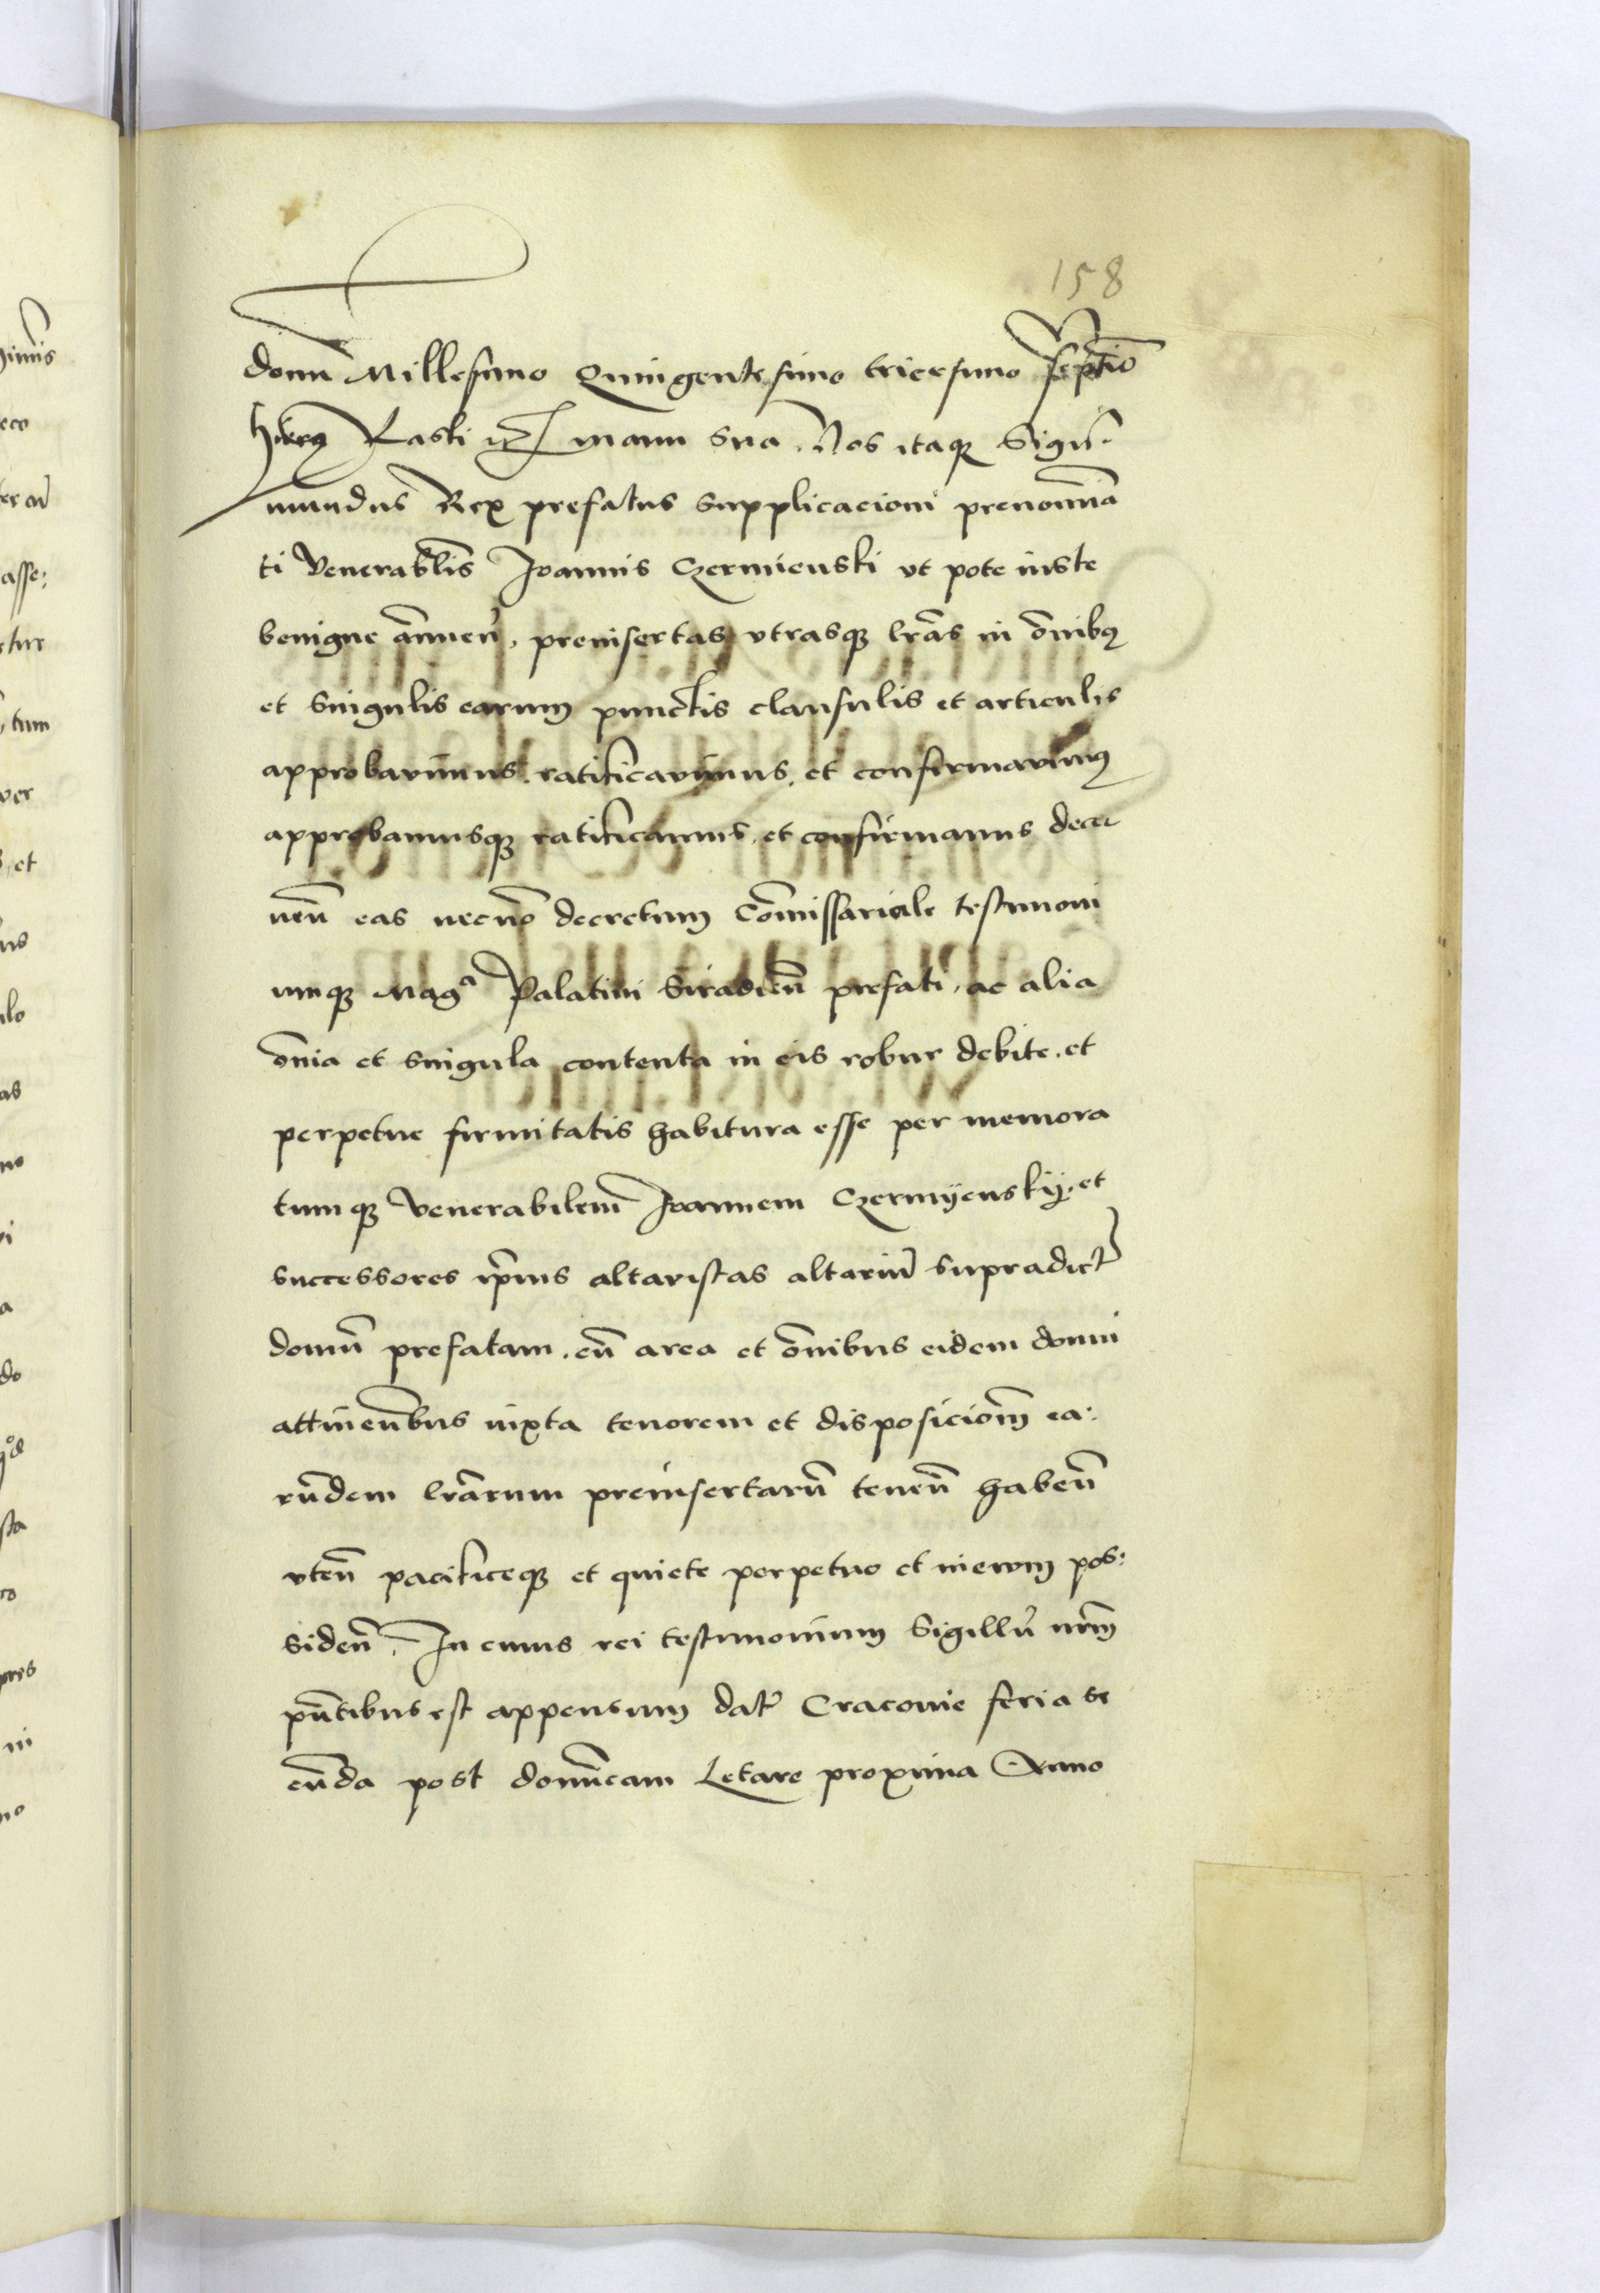 158
domi Millesimo Quingentesimo tricesimo septīo
hierꝯ Laski etꝫ manu sua. Nos itaqꝫ Sigis
mundus Rex prefatus supplicacioni prenomīa
ti Venerabl̄is Joannis Czermienski vt pote iuste
benigne ānnuen̄, preinsertas vtrasqꝫ lr̄as in ōnibꝯ
et singulis earum punctis clausulis et articulis
approbavimus, ratificavimus, et confirmavimꝯ
approbamusqꝫ ratificamus, et confirmamus decer
nen̄ eas necnō decretum Cōmissariale testimoni
umqꝫ Mag Palatini Siradien̄ prefati, ac alia
ōnia et singula contenta in eis robur debite, et
perpetue firmitatis habitura esse per memora
tumqꝫ Venerabilem̄ Joannem Czermÿenskÿ, et
successores ip̄ius altaristas altarium̄ supradict
domū prefatam, cū area et ōnibus eidem domui
attinen̄bus iuxta tenorem et disposiciōm ea:
rūdem lr̄arum preinsertarū tenen̄ haben̄
vten̄ pacificeqꝫ et quiete perpetuo et in ewm pos:
siden̄. In cuius rei testimonium Sigillū nr̄m
pn̄tibus est appensum dat̄ Cracovie feria se
cūda post domīcam Letare proxima Anno